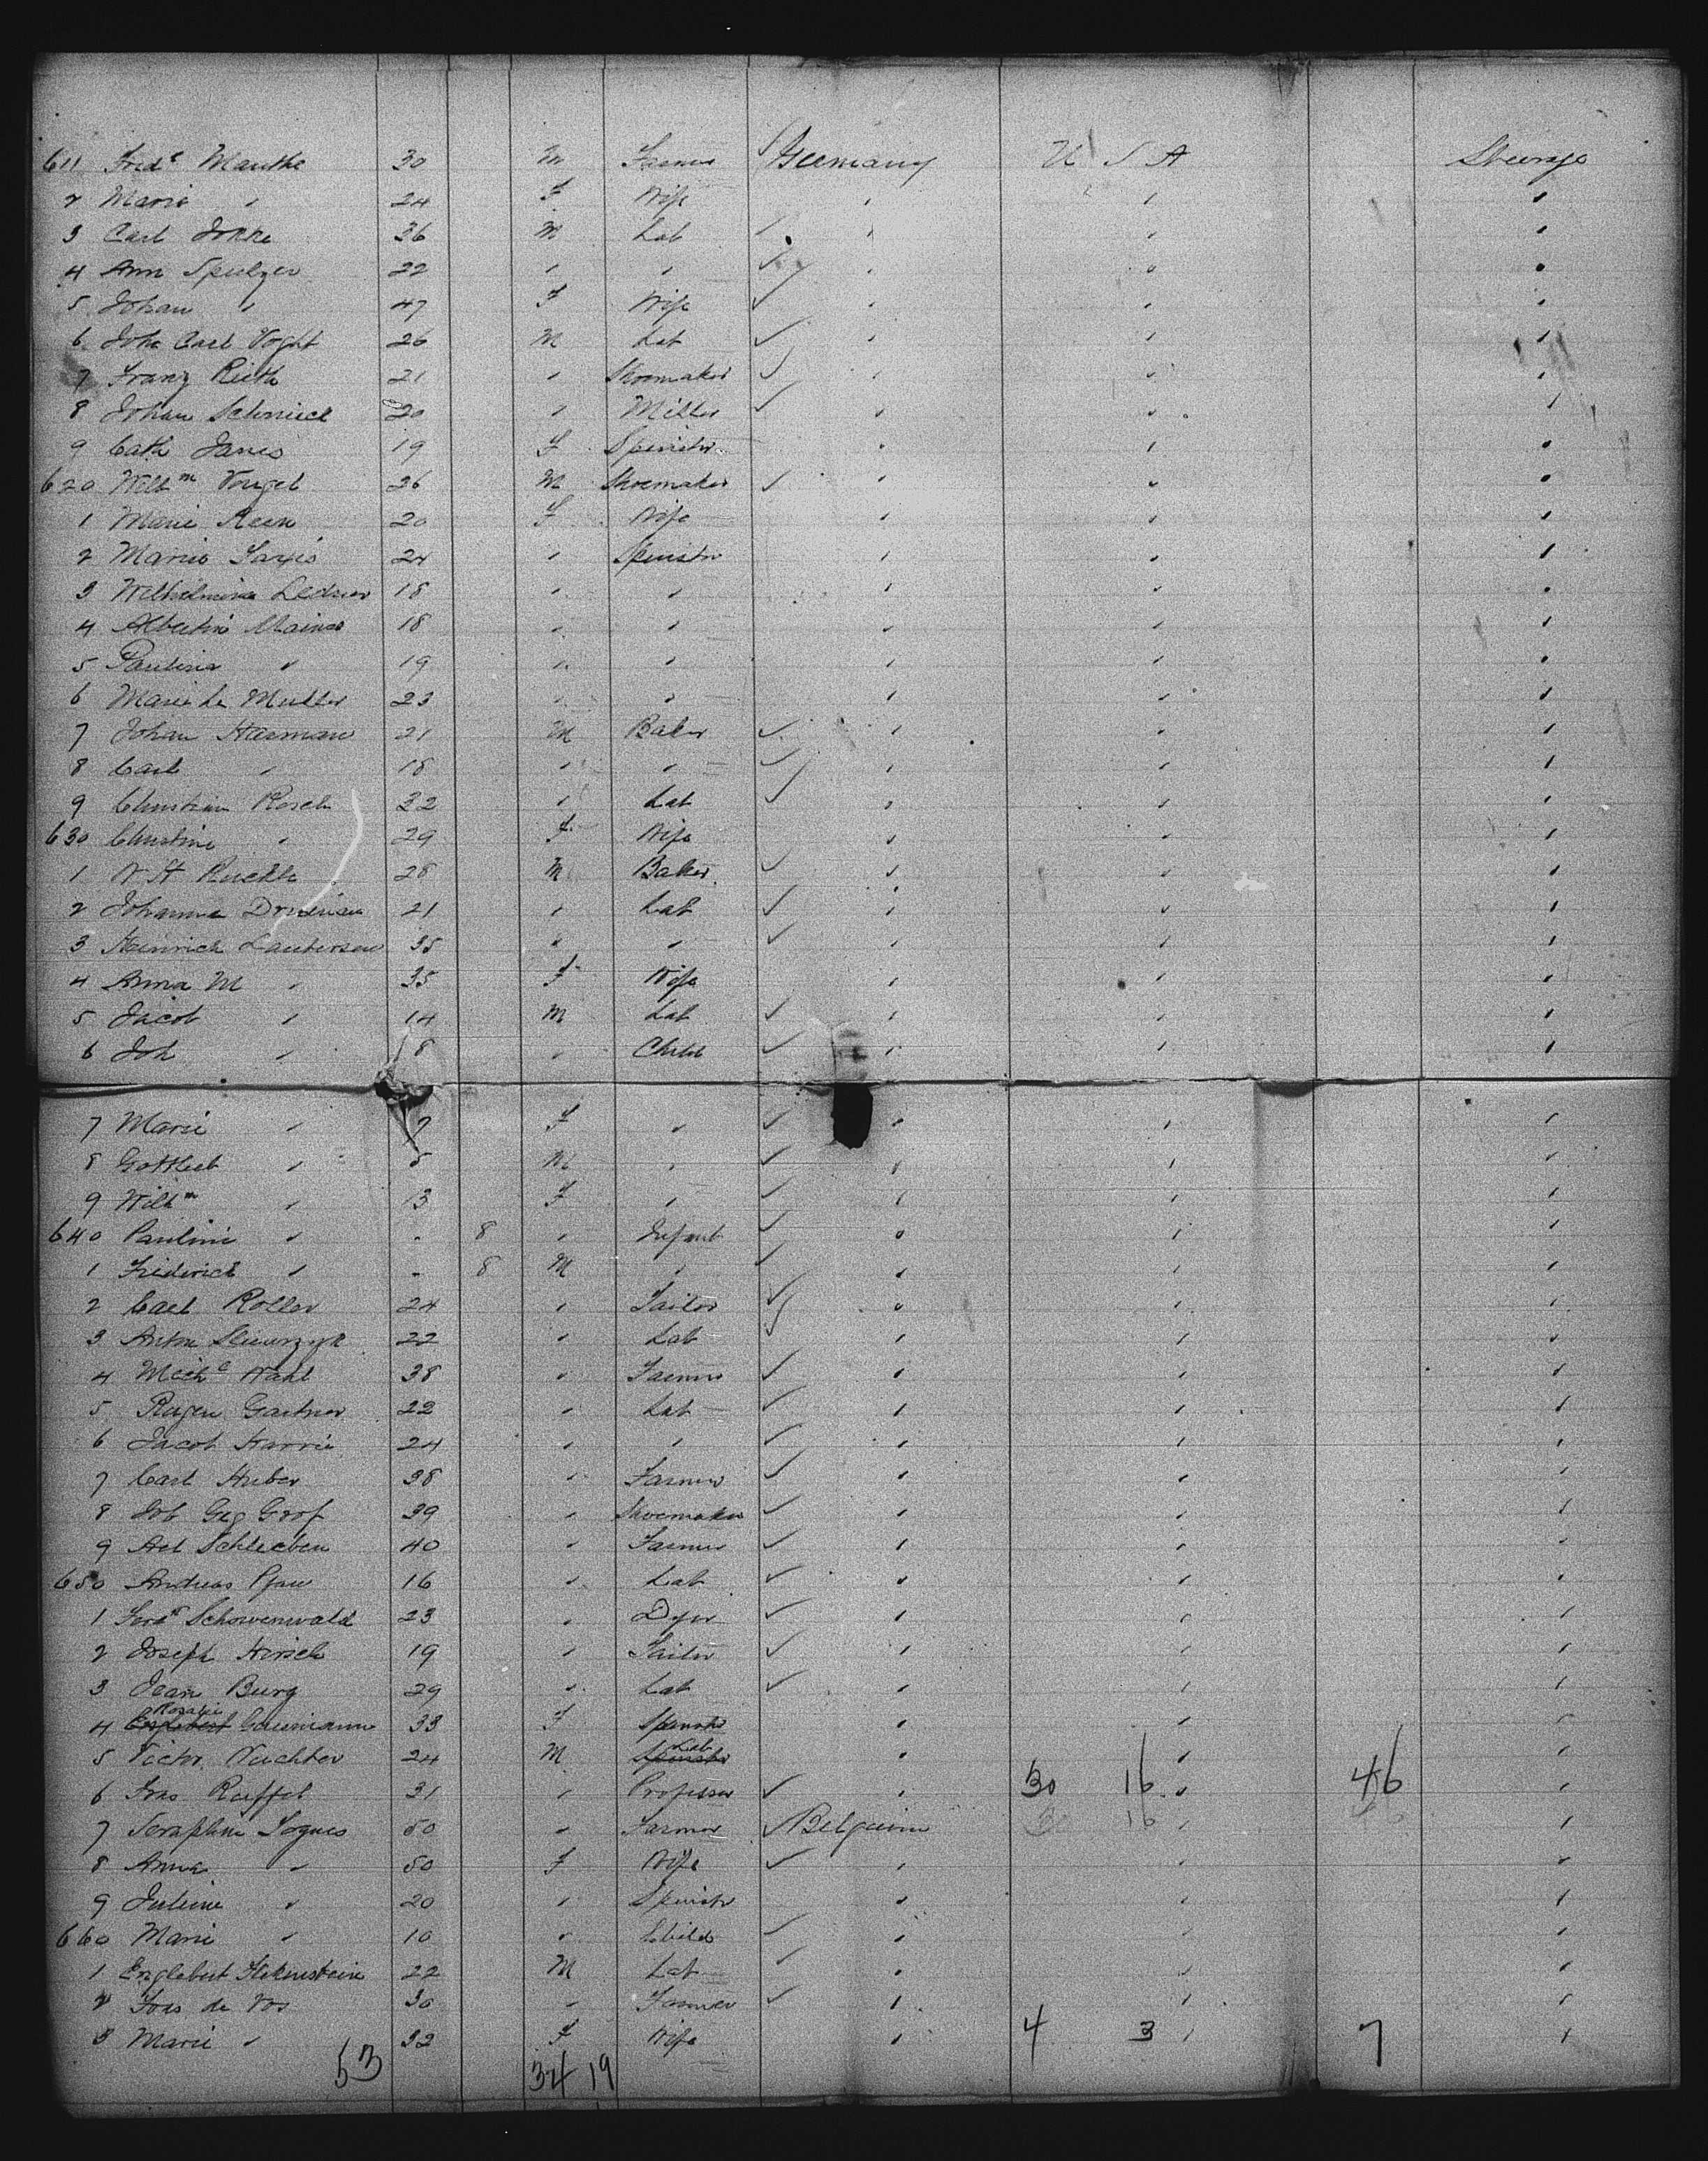 611 Fredc Manthe 30 M Farmer Germany U S A Steerage
2 Marie " 24 F Wife " " "
3 Carl 36 M Lab " " "
4 Ann Spulzer 22 " " " " "
5 Johan " 47 F Wife " " "
6 Joh Carl Voght 26 M Lab " " "
7 Franz Rieth 21 " Shoemaker " " "
8 Johan Schmiel 20 " Miller " " "
9 Cath Janes 19 F Spinster " " "
620 Willm Vougel 26 M Shoemaker " " "
1 Marie Keen 20 F Wife " " "
2 Marie 24 " Spinster " " "
3 Wilhelmina Ledner 18 " " " " "
4 Albertine Mainza 18 " " " " "
5 Paulina " 19 " " " " "
6 Marie La Muller 23 " " " " "
7 Johan Harman 21 M Baker " " "
8 Carl " 18 " " " " "
9 Christian Rosch 32 " Lab " " "
630 Christine " 29 F Wife " " "
1 W H Ruckle 28 M Baker " " "
2 Johanna 21 " Lab " " "
3 Heinrich Lautersen 35 " " " " "
4 Anna M " 35 F Wife " " "
5 Jacob " 14 M Lab " " "
6 Joh " 8 " Child " " "
7 Marie " 7 F " " " "
8 Gottlieb " 5 M " " " "
9 Willm " 13 F " " " "
640 Pauline " - 8 " Infant " " "
1 Friderick " - 8 M " " " "
2 Carl Roller 24 " Tailor " " "
3 Anton 22 " Lab " " "
4 Michc Wahl 38 " Farmer " " "
5 Gartner 22 " Lab " " "
6 Jacob Harrie 24 " " " " "
7 Carl Huber 38 " Farmer " " "
8 Job Geg Grof 39 " Shoemaker " " "
9 Ad Schlieben 40 " Farmer " " "
650 Andreas Pfau 16 " Lab " " "
1 Ferdd Schowenwald 23 " Dyer " " "
2 Joseph Hirsch 19 " Tailor " " "
3 Jean Burg 29 " Lab " " "
4 Englebert Rosalie Gausmann 33 F Spinster " " "
5 Victor Wachter 24 M Spinster Lab " " "
6 Fras Raffel 31 " Professor " 30 16 " 46 "
7 Seraphin Jogues 50 " Farmer Belguim 30 16 " 46 "
8 Anna " 50 F Wife " " "
9 Juline " 20 " Spinstr " " "
660 Marie " 10 " Child " " "
1 Englebert Halenstein 22 M Lab " " "
2 Fras de Vos 30 " Farmer " " "
3 Marie " 32 F Wife " 4 3 " 7 "
53 34 19